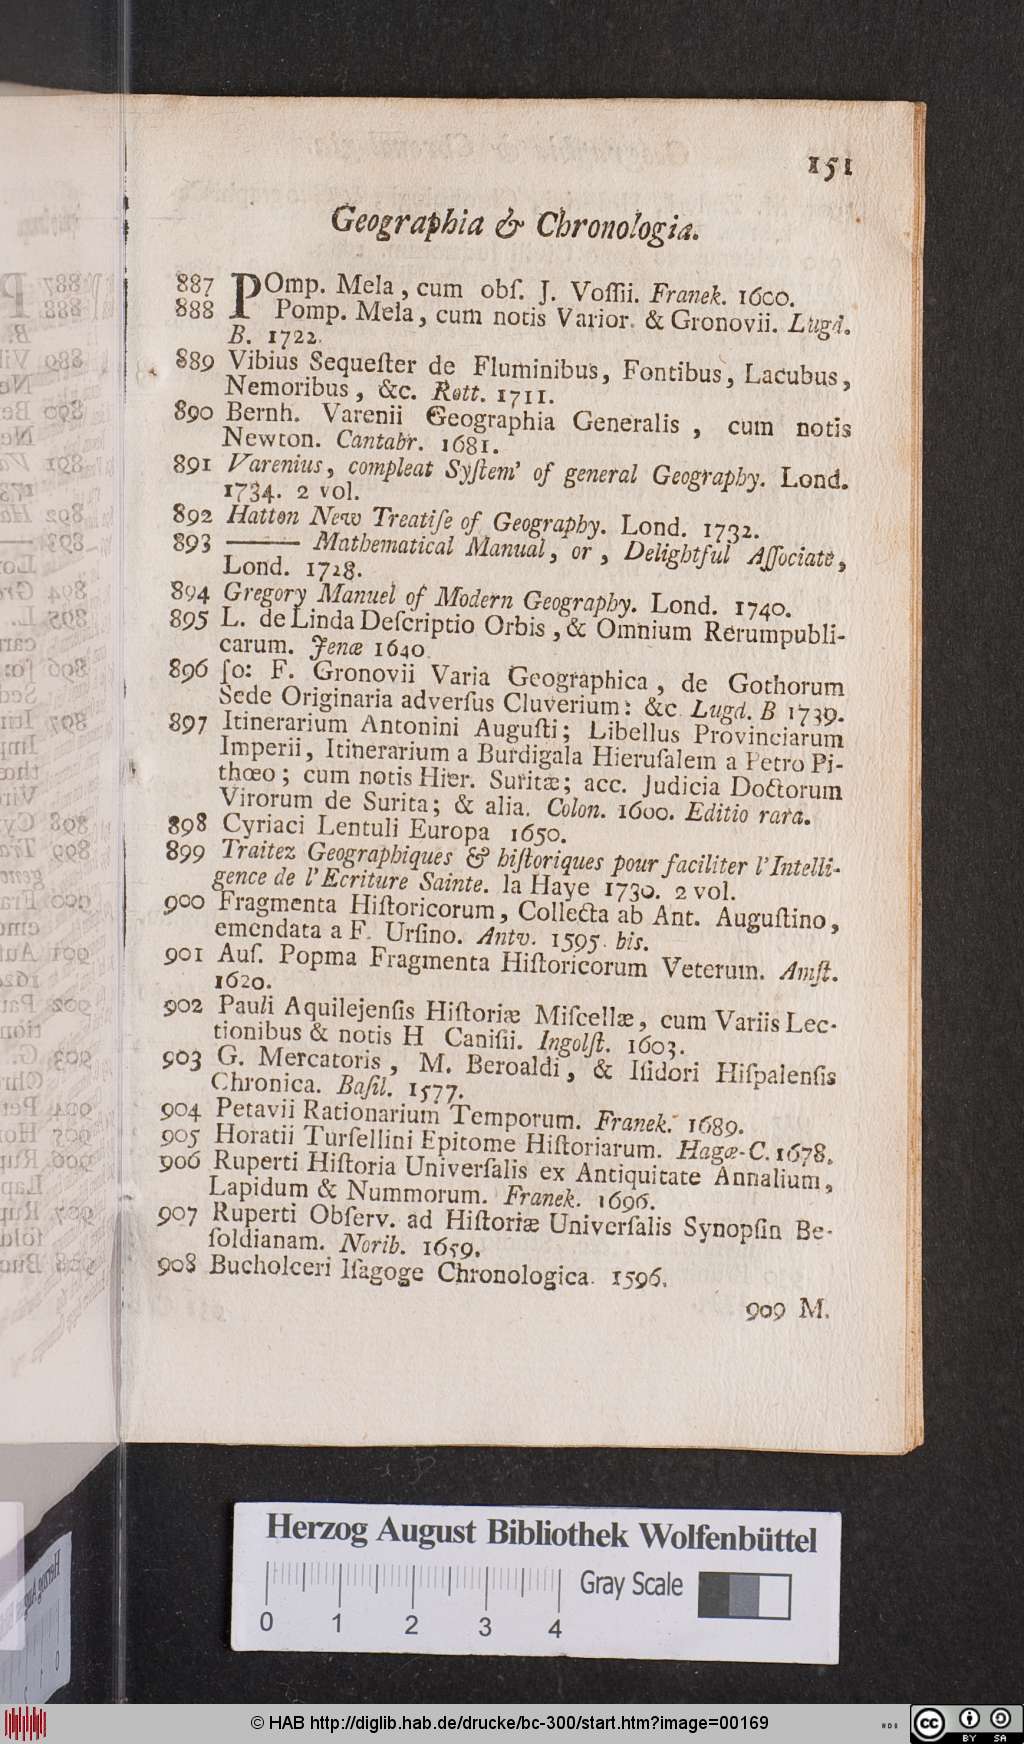 151
Geographia & Chronologia.
887 POmp. Mela, cum obſ. J. Voſſii. Franek. 1600.
888 Pomp. Mela, cum notis Varior. & Gronovii. Lugd.
B. 1722.
889 Vibius Sequeſter de Fluminibus, Fontibus, Lacubus,
Nemoribus, &c. Rott. 1711.
890 Bernh. Varenii Geographia Generalis, cum notis
Newton. Cantabr. 1681.
891 Varenius, compleat Syſtem' of general Geography. Lond.
1734. 2 vol.
892 Hatton New Treatiſe of Geography. Lond. 1732.
893 ——— Mathematical Manual, or, Delightful Aſſociate,
Lond. 1728.
894 Gregory Manuel of Modern Geography. Lond. 1740.
895 L. de Linda Deſcriptio Orbis, & Omnium Rerumpubli-
carum. Jenæ 1640.
896 ſo: F. Gronovii Varia Geographica, de Gothorum
Sede Originaria adverſus Cluverium: &c. Lugd. B 1739.
897 Itinerarium Antonini Auguſti; Libellus Provinciarum
Imperii, Itinerarium a Burdigala Hieruſalem a Petro Pi-
thœo; cum notis Hier. Suritæ; acc. Judicia Doctorum
Virorum de Surita; & alia. Colon. 1600. Editio rara.
898 Cyriaci Lentuli Europa 1650.
899 Traitez Geographiques & hiſtoriques pour faciliter l'Intelli-
gence de l'Ecriture Sainte. la Haye 1730. 2 vol.
900 Fragmenta Hiſtoricorum, Collecta ab Ant. Auguſtino,
emendata a F. Urſino. Antv. 1595. bis.
901 Auſ. Popma Fragmenta Hiſtoricorum Veterum. Amſt.
1620.
902 Pauli Aquilejenſis Hiſtoriæ Miſcellæ, cum Variis Lec-
tionibus & notis H Caniſii. Ingolſt. 1603.
903 G. Mercatoris, M. Beroaldi, & Iſidori Hiſpalenſis
Chronica. Baſil. 1577.
904 Petavii Rationarium Temporum. Franek. 1689.
905 Horatii Turſellini Epitome Hiſtoriarum. Hagæ-C. 1678.
906 Ruperti Hiſtoria Univerſalis ex Antiquitate Annalium,
Lapidum & Nummorum. Franek. 1696.
907 Ruperti Obſerv. ad Hiſtoriæ Univerſalis Synopſin Be-
ſoldianam. Norib. 1659.
908 Bucholceri Iſagoge Chronologica. 1596.
909 M.
Herzog August Bibliothek Wolfenbüttel
Gray Scale
0 1 2 3 4
© HAB http://diglib.hab.de/drucke/bc-300/start.htm?image=00169
cc BY SA